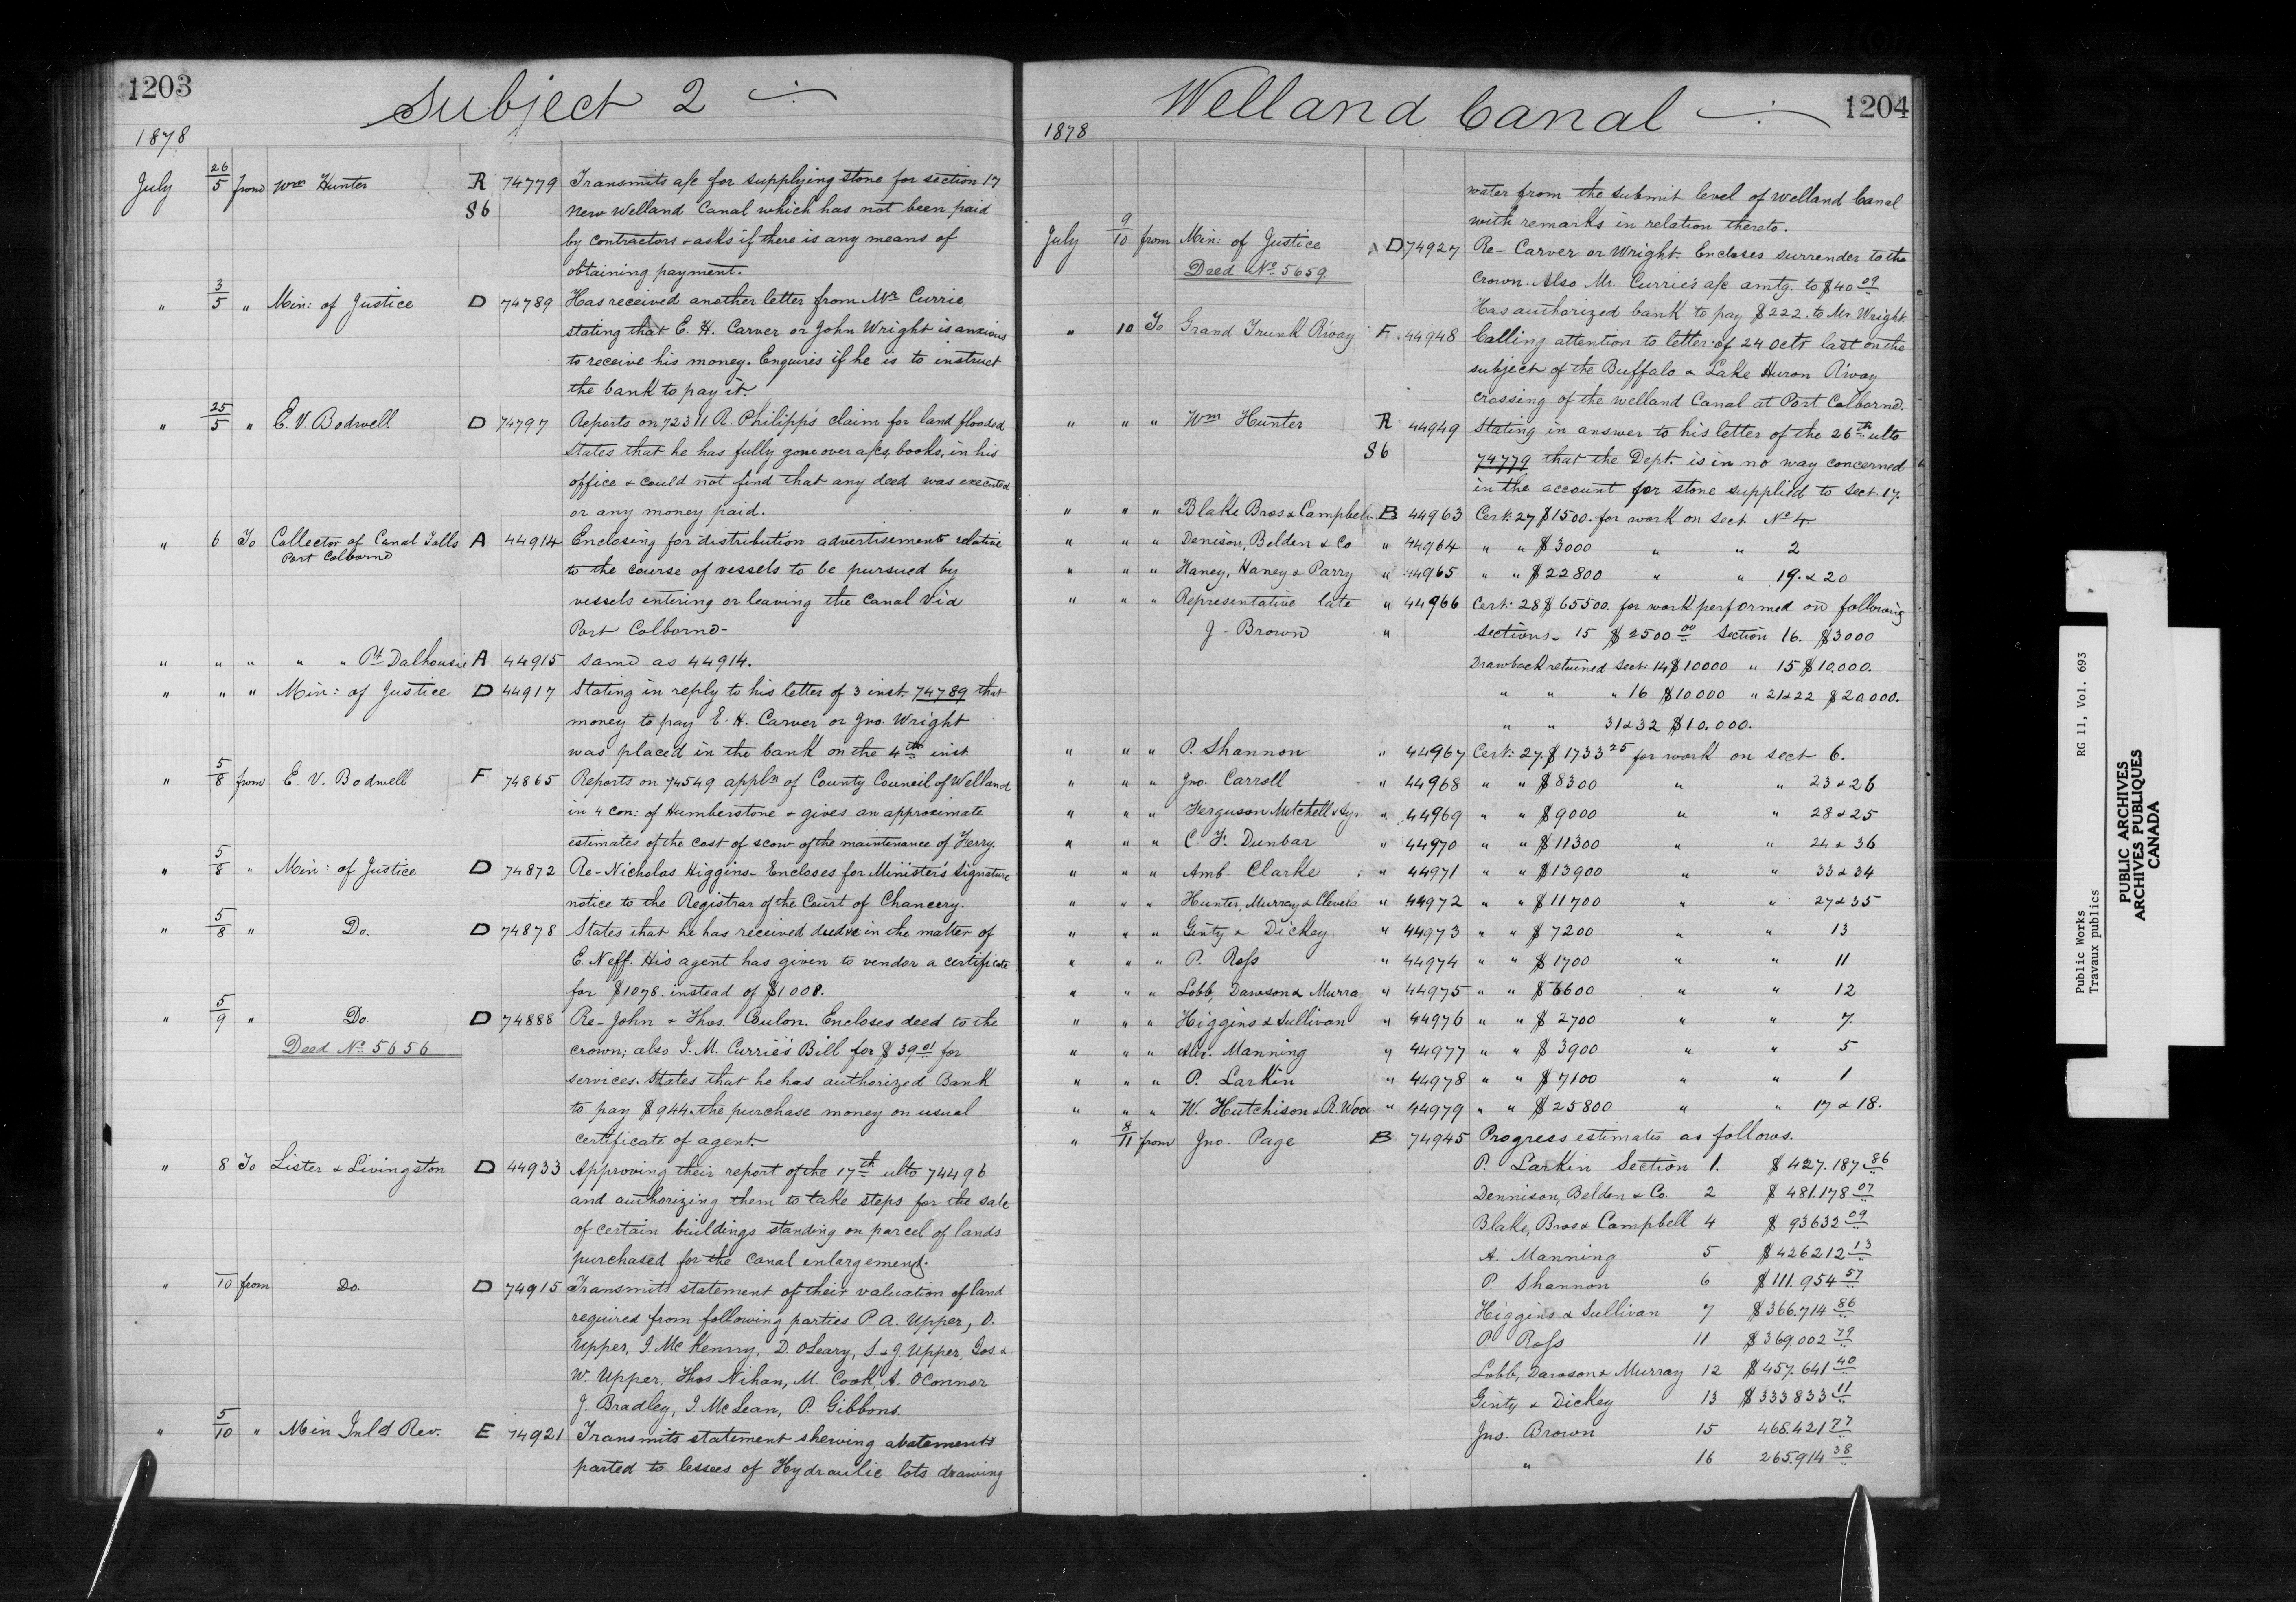 1203
Subject 2
1878
July 26/5 from Wm Hunter R 74779 Transmits a/c for supplying stone for section 17
86 New Welland Canal which has not been paid
by contractors & asks if there is any means of
obtaining payment.
" 3/5 " Min: of Justice D 74789 Has received another letter from Mr. Currie
stating that E. H. Carver or John Wright is anxious
to receive his money. Enquires if he is to instruct
the bank to pay it.
" 25/5 " E. V. Bodwell D 74797 Reports on 72311 R. Philipps claim for land flooded
States that he has fully gone over a/cs, books, in his
office & could not find that any deed was executed
or any money paid.
" 6 To Collector of Canal Tolls A 44914 Enclosing for distribution advertisements relative
Port Colborne
to the course of vessels to be pursued by
vessels entering or leaving the Canal via
Port Colborne-
" " " " " Pt Dalhousie A 44915 same as 44914.
" " " Min: of Justice D 44917 Stating in reply to his letter of 3 inst 74789 that
money to pay E. H. Carver or Jno. Wright
was placed in the bank on the 4th inst
" 5/8 from E. V. Bodwell F 74865 Reports on 74549 appln of County Council of Welland
in 4 con: of Humberstone & gives an approximate
estimates of the cost of scow of the maintenance of Ferry.
" 5/8 " Min: of Justice D 74872 Re- Nicholas Higgins- Encloses for Minister's signature
notice to the Registrar of the Court of Chancery.
" 5/8 " Do. D 74878 States that he has received deed &c in the matter of
E. Neff. His agent has given to vendor a certificate
for $1078. instead of $1008.
" 5/9 " Do. D 74888 Re- John & Thos. Coulon. Encloses deed to the
Deed No. 5656 crown; also I. M. Currie's Bill for $39 01 for
services. States that he has authorized Bank
to pay $944. the purchase money on usual
certificate of agent.
" 8 To Lister & Livingston D 44933 Approving their report of the 17th ulto 74496
and authorizing them to take steps for the sale
of certain buildings standing on parcel of lands
purchased for the canal enlargement.
" 10 from Do. D 74915 Transmits statement of their valuation of land
required from following parties P. A. Upper, O.
Upper, I. McKenny, D. OLeary, S & J. Upper, Jos. &
W. Upper, Thos Nihan, M. Cook, A. OConnor
J. Bradley, I. McLean, P. Gibbons.
" 5/10 " Min Inld Rev. E 74921 Transmits statement shewing abatements
parted to lessees of Hydraulic lots drawing
Welland Canal
1204
1878
water from the submit level of Welland Canal
with remarks in relation thereto.
July 9/10 from Min: of Justice D 74927 Re- Carver or Wright- Encloses surrender to the
Deed No. 5659
Crown. Also Mr. Currie's a/c amtg. to $40 09
Has authorized bank to pay $222. to Mr. Wright.
" 10 To Grand Trunk R'way F. 44948 Calling attention to letter of 24 Octr last on the
subject of the Buffalo & Lake Huron R'way
crossing of the Welland Canal at Port Colborne.
" " " Wm Hunter R 44949 Stating in answer to his letter of the 26th ulto
86 74779 that the Dept. is in no way concerned
in the account for stone supplied to Sect 17.
" " " Blake Bros & Campbell B 44963 Cert: 27 $1500. for work on Sect. No 4
" " " Denison, Belden & Co " 44964 " " $3000 " " 2
" " " Haney, Haney & Parry " 44965 " " $22800 " " 19. & 20
" " " Representative late " 44966 Cert: 28 $65500. for work performed on following
J. Brown " Sections- 15 $2500 00 Section 16. $3000
Drawback returned Sect: 14 $10000 " 15 $10,000.
" " " 16 $10000 " 21 & 22 $20,000.
" " 31 & 32 $10,000.
" " " P. Shannon " 44967 Cert: 27. $1733 25 for work on Sect 6.
" " " Jno. Carroll " 44968 " " $8300 " " 23 & 26
" " " Ferguson Mitchell & Sy. " 44969 " " $9000 " " 28 & 25
" " " C. F. Dunbar " 44970 " " $11300 " " 24 & 36
" " " Amb. Clarke " 44971 " " $13900 " " 33 & 34
" " " Hunter, Murray & Clevela " 44972 " " $11700 " " 27 & 35
" " " Ginty & Dickey " 44973 " " $7200 " " 13
" " " P. Ross " 44974 " " $1700 " " 11
" " " Lobb, Dawson & Murra " 44975 " " $6600 " " 12
" " " Higgins & Sullivan " 44976 " " $2700 " " 7.
" " " Alex. Manning " 44977 " " $3900 " " 5
" " " P. Larkin " 44978 " " $7100 " " 1
" " " W. Hutchison & R. Woo " 44979 " " $25800 " " 17 & 18.
" 8/11 from Jno. Page B 74945 Progress estimates as follows.
P. Larkin Section 1. $427.187 86
Dennison, Belden & Co. 2 $481.178 07
Blake, Bros & Campbell 4 $93632 09
A. Manning 5 $426212 13
P. Shannon 6 $111.954 57
Higgins & Sullivan 7 $366.714 86
P. Ross 11 $369.002 79
Lobb, Dawson & Murray 12 $457.641 40
Ginty & Dickey 13 $333833 11
Jno. Brown 15 468.421 77
" 16 265.914 38
Public Works RG 11, Vol. 693
Travaux publics
PUBLIC ARCHIVES
ARCHIVES PUBLIQUES
CANADA